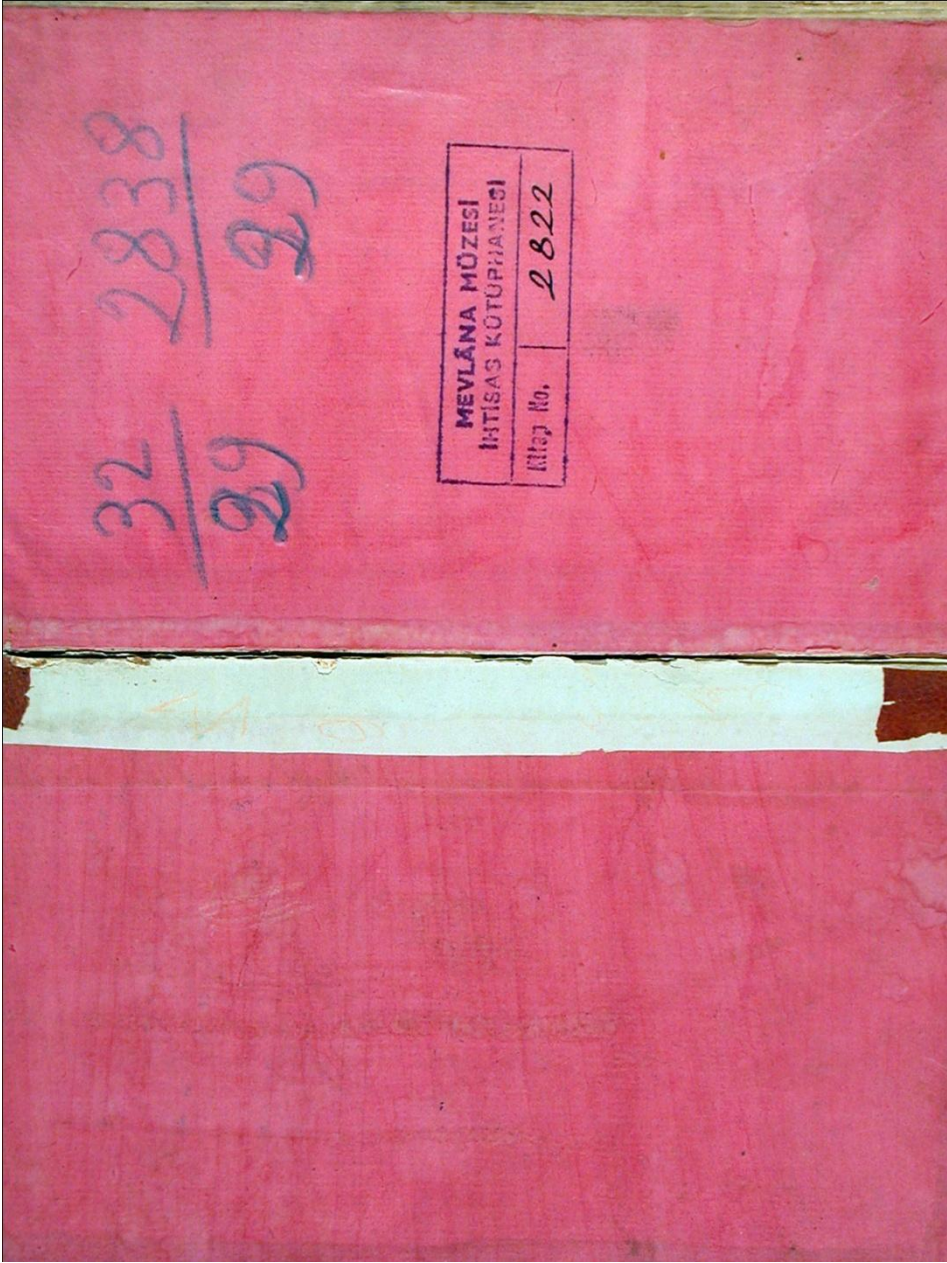 32 2838
29 29
MEVLÂNA MÜZESİ
İHTİSAS KÜTÜPHANESİ
Kitap No. 2822